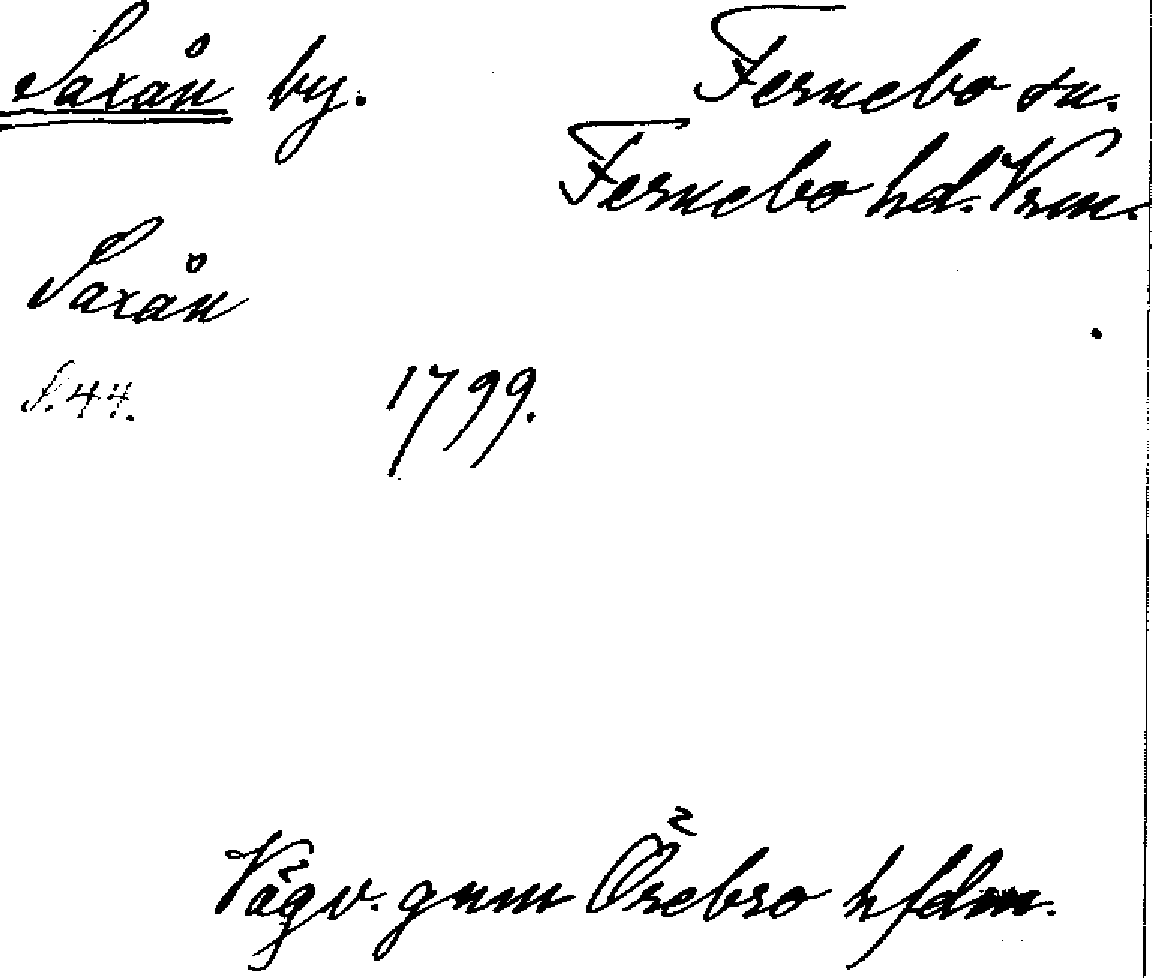 Saxån by. Fernebo sn.
Fernebo hd. Vrm.
Saxån
S. 44. 1799.
Vägv. gnm Örebro hfdm.